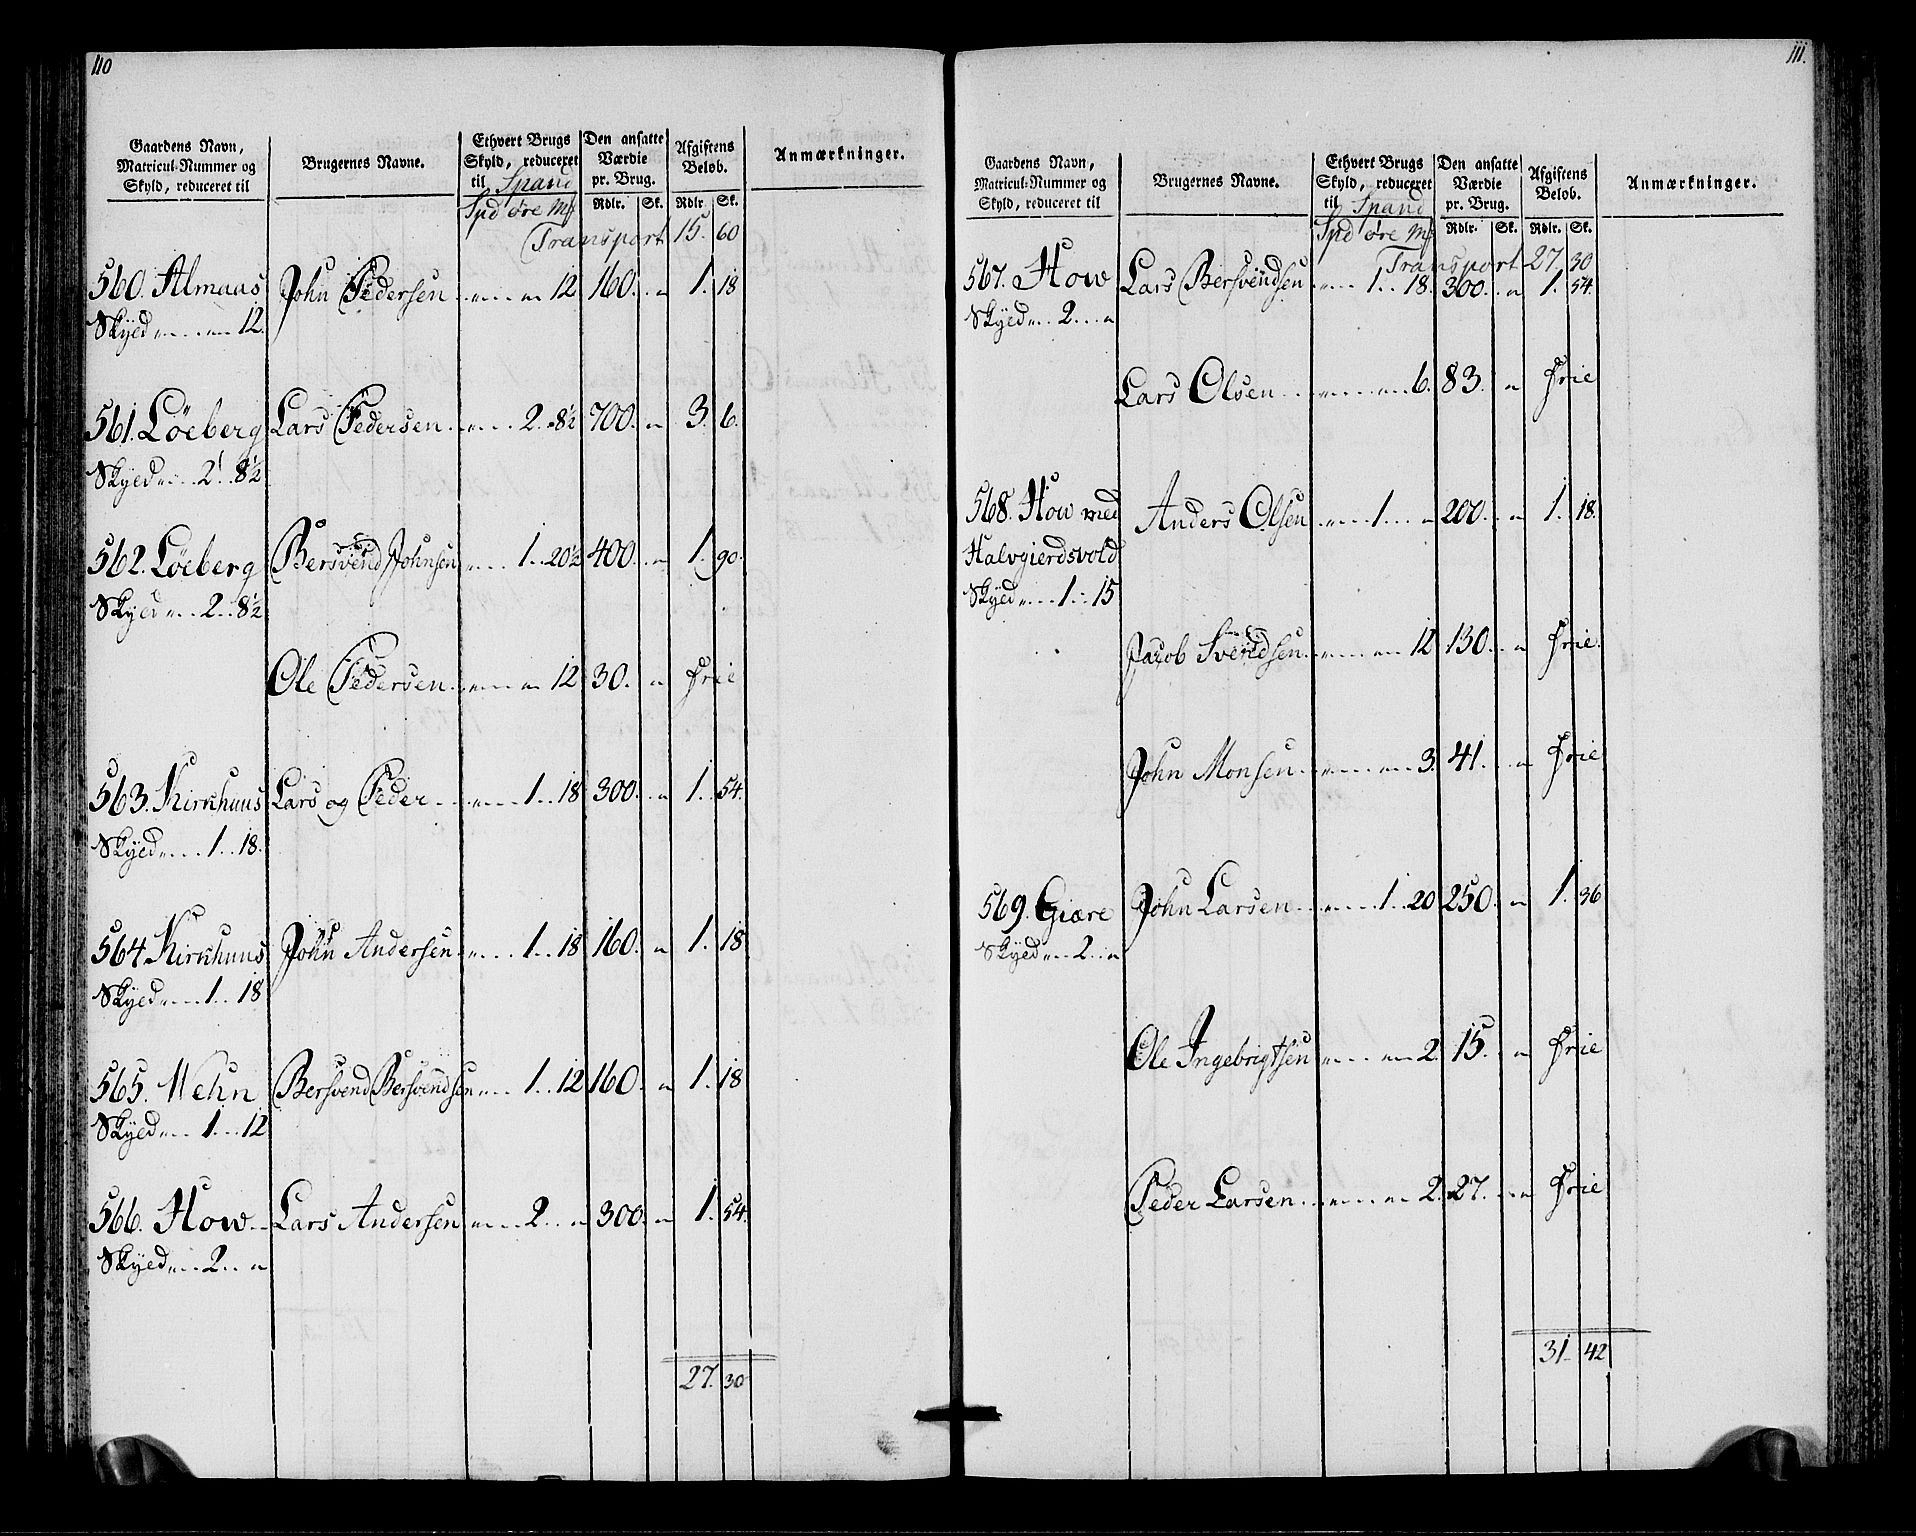 110
Gaardens Navn, Matricul-Nummer og Skyld, reduceret til | Brugernes Navne. | Ethvert Brugs Skyld, reduceret til Spand | Den ansatte Værdie pr. Brug. | Afgiftens Belob. | Anmærkninger.
Spd øre Mk | Rdlr. | Sk. | Rdlr. | Sk.
Transport 15. 60
560. Almaas John Pedersen 12 160. 1. 18
Skyld 12.
561. Löeberg Lars Pedersen 2. 8½ 700. 3. 6.
Skyld 2. 8½
562. Löeberg Bersvend Johnsen 1. 20½ 400. 1. 90.
Skyld 2. 8½
Ole Pedersen 12 30. Frie
563. Kirkhuus Lars og Peder 1. 18 300. 1. 54.
Skyld 1. 18.
564. Kirkhuus John Andersen 1. 18 160. 1. 18
Skyld 1. 18
565. Wehn Bersvend Bersvendsen 1. 12 160. 1. 18
Skyld 1. 12
566. How Lars Andersen 2. 300. 1. 54.
Skyld 2.
27. 30
111.
Gaardens Navn, Matricul-Nummer og Skyld, reduceret til | Brugernes Navne. | Ethvert Brugs Skyld, reduceret til Spand | Den ansatte Værdie pr. Brug. | Afgiftens Belob. | Anmærkninger.
Spd øre Mk | Rdlr. | Sk. | Rdlr. | Sk.
Transport 27. 30
567. How Lars Bersvendsen 1. 18. 300. 1. 54.
Skyld 2.
Lars Olsen 6. 83. Frie
568. How med Anders Olsen 1. 200. 1. 18.
Halvgierdsvold
Skyld 1. 15
Jacob Svendsen 12 130. Frie.
John Monsen 3. 41. Frie
569. Giære John Larsen 1. 20 250. 1. 36
Skyld 2.
Ole Ingebrigtsen 2 15. Frie
Peder Larsen 2. 27. Frie
31 42